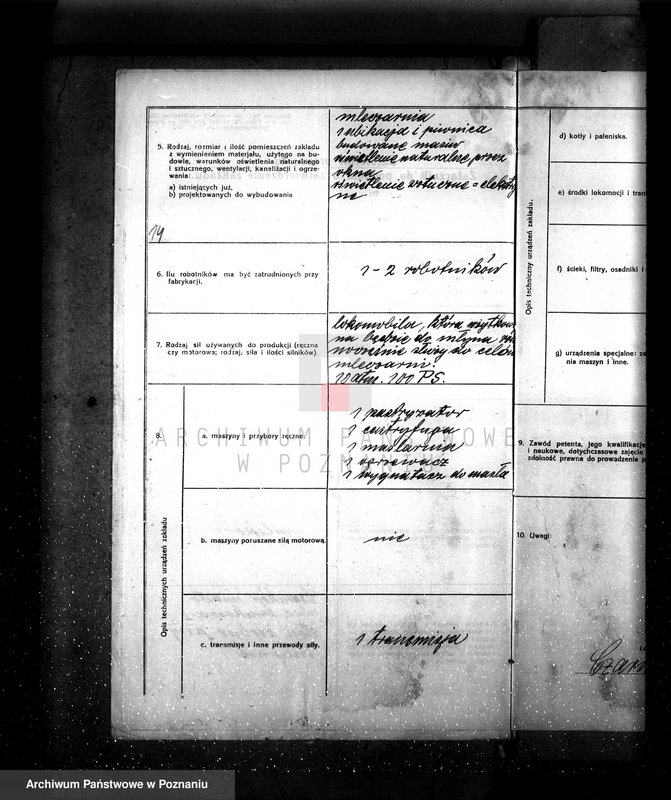 5. Rodzaj, rozmiar i ilość pomieszczeń zakładu
z wymienieniem materjału, użytego na bu-
dowle, warunków oświetlenia naturalnego
i sztucznego, wentylacji, kanalizacji i ogrze-
wania:
a) istniejących już,
b) projektowanych do wybudowania
mleczarnia
1 ubikacja i piwnica
budowane masiw
oświetlenie naturalne przez
okna
oświetlenie sztuczne = elektry
ne
14
6. Ilu robotników ma być zatrudnionych przy
fabrykacji.
1 – 2 robotników
7. Rodzaj sił używanych do produkcji (ręczna
czy motorowa; rodzaj, siła i ilości silników).
lokomobila, która użytkowa
na będzie do młyna
służy do celów
mleczarni.
10 atm. 100 PS.
8.
Opis technicznych urządzeń zakładu
a. maszyny i przybory ręczne.
1 pastryzator
1 centryfuga
1 maślarnia
1 ogrzewacz
1 wygniatacz do masła
b. maszyny poruszane siłą motorową.
nie
c. transmisje i inne przewody siły.
1 transmisja
Opis techniczny urządzeń zakładu.
d) kotły i paleniska.
e) środki lokomocji i tran
f) ścieki, filtry, osadniki i
g) urządzenia specjalne: za
nia maszyn i inne.
9. Zawód petenta, jego kwalifikacje
i naukowe, dotychczasowe zajęcie
zdolność prawna do prowadzenia p
10. Uwagi:
Czarn
ARCHIWUM PAŃSTWOWE
W POZNANIU
Archiwum Państwowe w Poznaniu